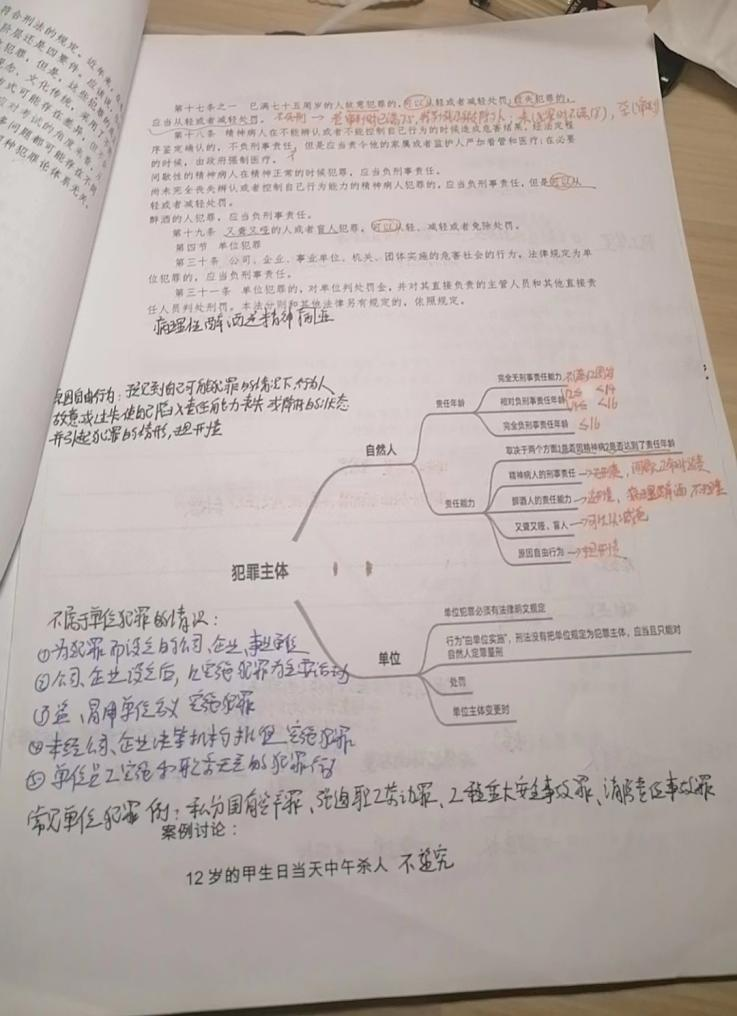 符合刑法的规定。近年来，
阶层还是四要件。应该说，
犯罪，但是，这些犯罪
观念、文化传统，采用了不
式可能存在差异，但
应对考试的角度来看，
事问题都可能存在不同
种犯罪论体系无关。
第十七条之一 已满七十五周岁的人故意犯罪的，可以从轻或者减轻处罚；过失犯罪的，
应当从轻或者减轻处罚。
第十八条 精神病人在不能辨认或者不能控制自己行为的时候造成危害结果，经法定程
序鉴定确认的，不负刑事责任，但是应当责令他的家属或者监护人严加看管和医疗；在必要
的时候，由政府强制医疗。
间歇性的精神病人在精神正常的时候犯罪，应当负刑事责任。
尚未完全丧失辨认或者控制自己行为能力的精神病人犯罪的，应当负刑事责任，但是可以从
轻或者减轻处罚。
醉酒的人犯罪，应当负刑事责任。
第十九条 又聋又哑的人或者盲人犯罪，可以从轻、减轻或者免除处罚。
第四节 单位犯罪
第三十条 公司、企业、事业单位、机关、团体实施的危害社会的行为，法律规定为单
位犯罪的，应当负刑事责任。
第三十一条 单位犯罪的，对单位判处罚金，并对其直接负责的主管人员和其他直接责
任人员判处刑罚。本法分则和其他法律另有规定的，依照规定。
病理性醉酒是精神病症
原因自由行为：意识到自己可能犯罪的情况下，行为人
故意或过失使自己陷入责任能力丧失或降低的状态
并引起犯罪的情形，担刑责
犯罪主体
自然人
责任年龄
完全无刑事责任能力 不满12周岁
相对负刑事责任年龄 12≤ <14
14≤ <16
完全负刑事责任年龄 ≤16
责任能力
取决于两个方面1是否因精神病2是否达到了责任年龄
精神病人的刑事责任
醉酒人的责任能力
又聋又哑、盲人
原因自由行为→担刑责
单位
单位犯罪必须有法律明文规定
行为“由单位实施”，刑法没有把单位规定为犯罪主体，应当且只能对
自然人定罪量刑
处罚
单位主体变更时
不属于单位犯罪的情况：
①为犯罪而设立的公司、企业、事业单位
②公司、企业设立后，以实施犯罪为主要活动
③盗、冒用单位名义实施犯罪
④未经公司、企业决策机构批但实施犯罪
⑤单位员工实施和职务无关的犯罪行为
常见单位犯罪 例：私分国有资产罪、强迫职工劳动罪、工程重大安全事故罪、消防责任事故罪
案例讨论：
12岁的甲生日当天中午杀人 不追究